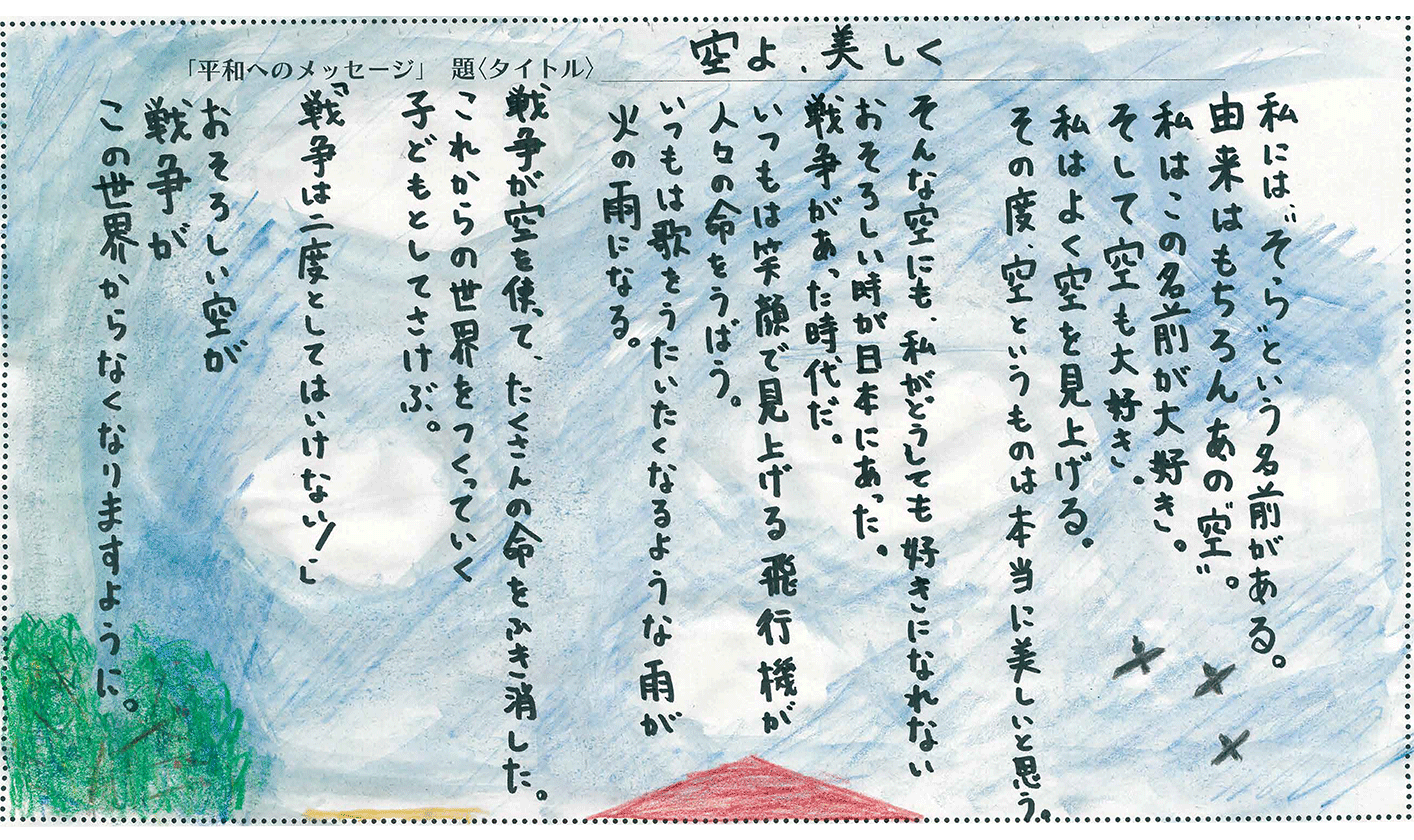 「平和へのメッセージ」 題〈タイトル〉 空よ、美しく
私には〝そら〟という名前がある。
由来はもちろんあの〝空〟。
私はこの名前が大好き。
そして空も大好き。
私はよく空を見上げる。
その度、空というものは本当に美しいと思う。
そんな空にも、私がどうしても好きになれない
おそろしい時が日本にあった。
戦争があった時代だ。
いつもは笑顔で見上げる飛行機が
人々の命をうばう。
いつもは歌をうたいたくなるような雨が
火の雨になる。
戦争が空を使って、たくさんの命をふき消した。
これからの世界をつくっていく
子どもとしてさけぶ。
「戦争は二度としてはいけない!」
おそろしい空が
戦争が
この世界からなくなりますように。